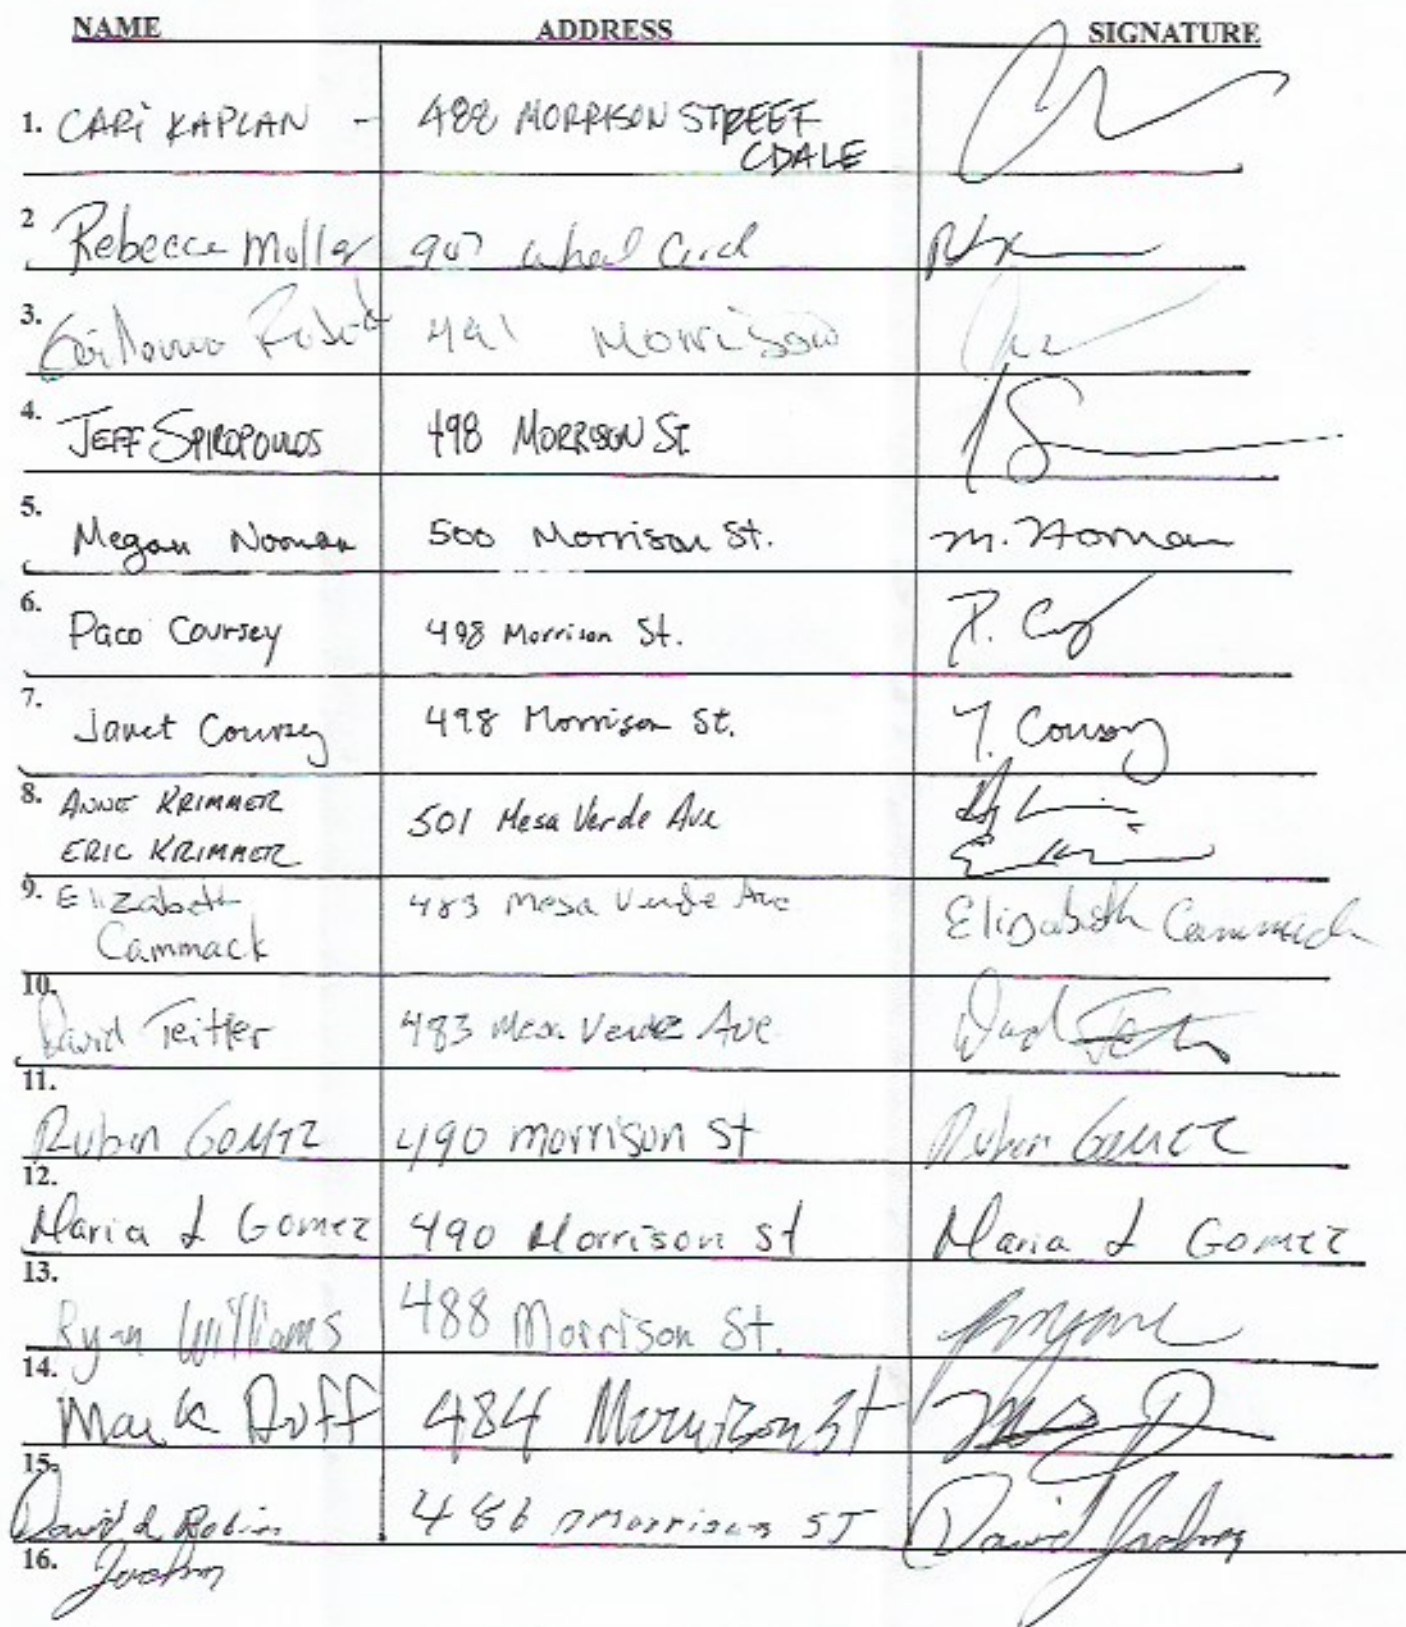 NAME ADDRESS SIGNATURE
1. CARI KAPLAN - 488 MORRISON STREET
CDALE
2 Rebecca Moller 907
3. 491 Morrison
4. JEFF SPIROPOULOS 498 MORRISON St
5. Megan Noonan 500 Morrison St. M. Noonan
6. Paco Coursey 498 Morrison St. P.
7. Janet Coursey 498 Morrison St. Y. Coursey
8. ANNE KRIMMER 501 Mesa Verde Ave
ERIC KRIMMER
9. Elizabeth 483 Mesa Verde Ave Elizabeth Cammack
Cammack
10. David Teitler 483 Mesa Verde Ave
11.
Rubin GOMEZ 490 morrison st Rubin GOMEZ
12.
Maria L Gomez 490 Morrison st Maria L Gomez
13.
Ryan Williams 488 Morrison St.
14.
Mark Duff 484 Morrison St
15.
David & Robin 486 Morrison ST David
16.